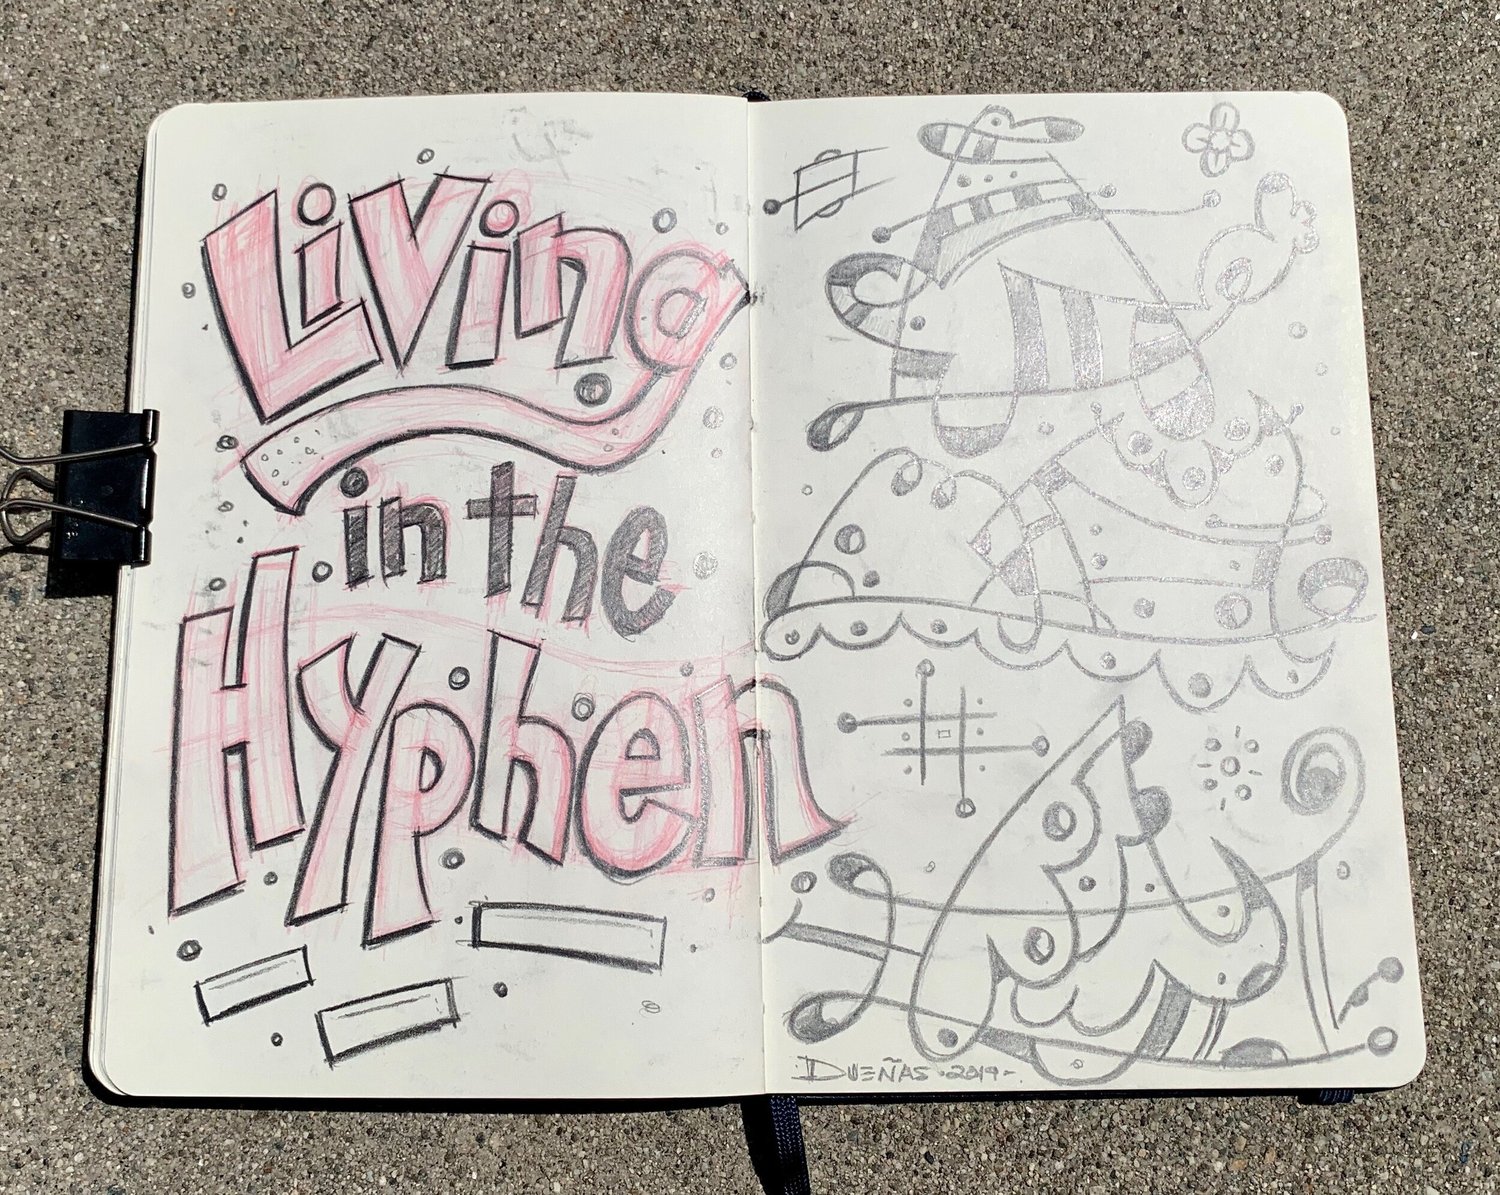 Living
in the
Hyphen
Dueñas · 2019 -